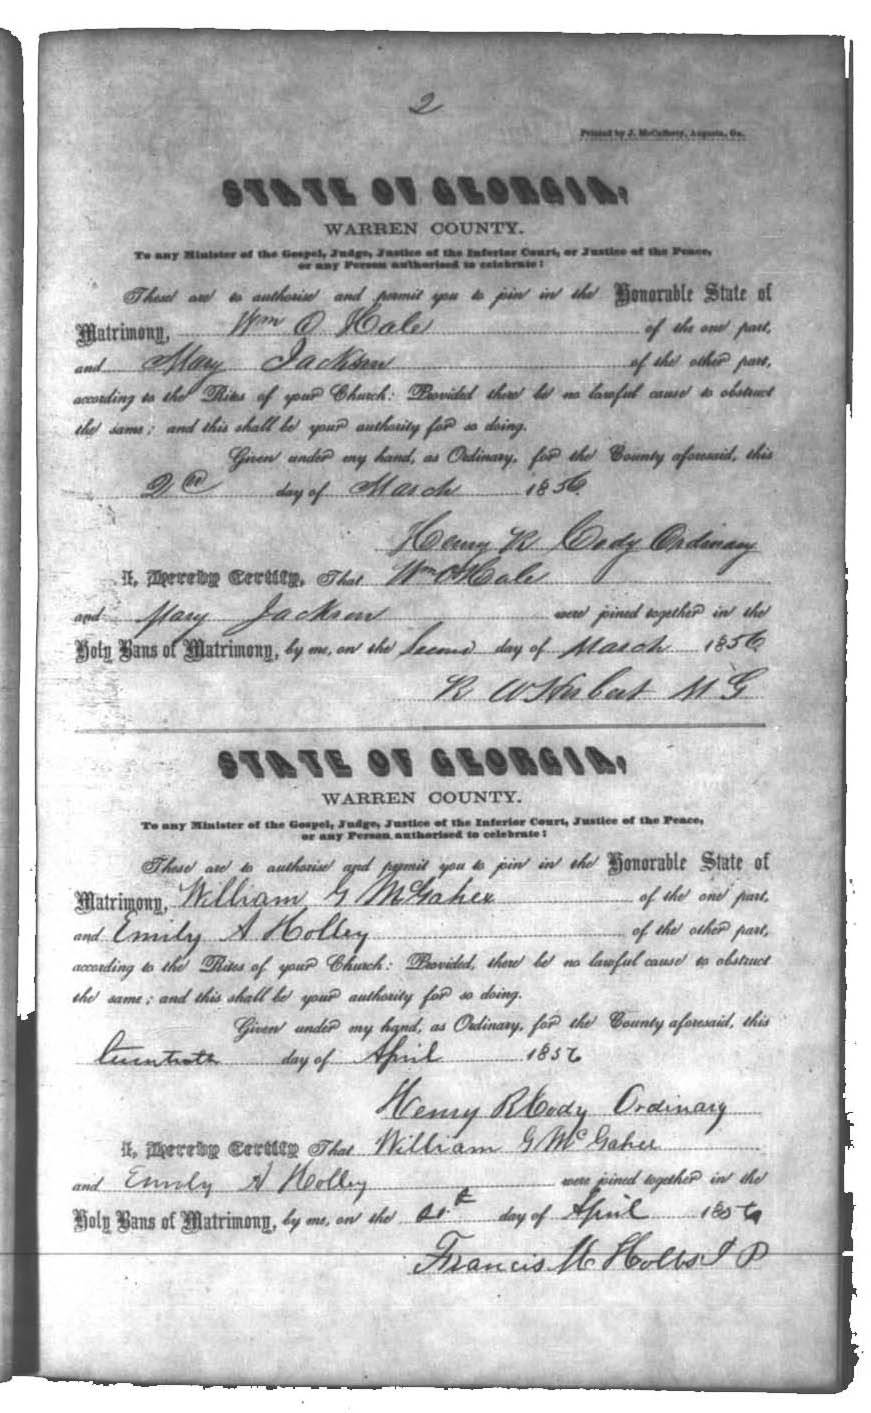 2
Printed by J. McCafferty, Augusta, Ga.
STATE OF GEORGIA,
WARREN COUNTY.
To any Minister of the Gospel, Judge, Justice of the Inferior Court, or Justice of the Peace,
or any Person authorised to celebrate:
These are to authorise and permit you to join in the Honorable State of
Matrimony, Wm O Hale of the one part,
and Mary Jackson of the other part,
according to the Rites of your Church: Provided there be no lawful cause to obstruct
the same; and this shall be your authority for so doing.
Given under my hand, as Ordinary, for the County aforesaid, this
day of March 1856
Henry R Cody Ordinary
I, Hereby Certify, That Wm O Hale
and Mary Jackson were joined together in the
Holy Bans of Matrimony, by me, on the Second day of March 1856
R W Herbert M G
STATE OF GEORGIA,
WARREN COUNTY.
To any Minister of the Gospel, Judge, Justice of the Inferior Court, Justice of the Peace,
or any Person authorised to celebrate:
These are to authorise and permit you to join in the Honorable State of
Matrimony, William G McGahee of the one part,
and Emily A Holley of the other part,
according to the Rites of your Church: Provided, there be no lawful cause to obstruct
the same; and this shall be your authority for so doing.
Given under my hand, as Ordinary, for the County aforesaid, this
day of April 1856
Henry R Cody Ordinary
I, Hereby Certify That William G McGahee
and Emily A Holley were joined together in the
Holy Bans of Matrimony, by me, on the day of April 1856
Francis M J P